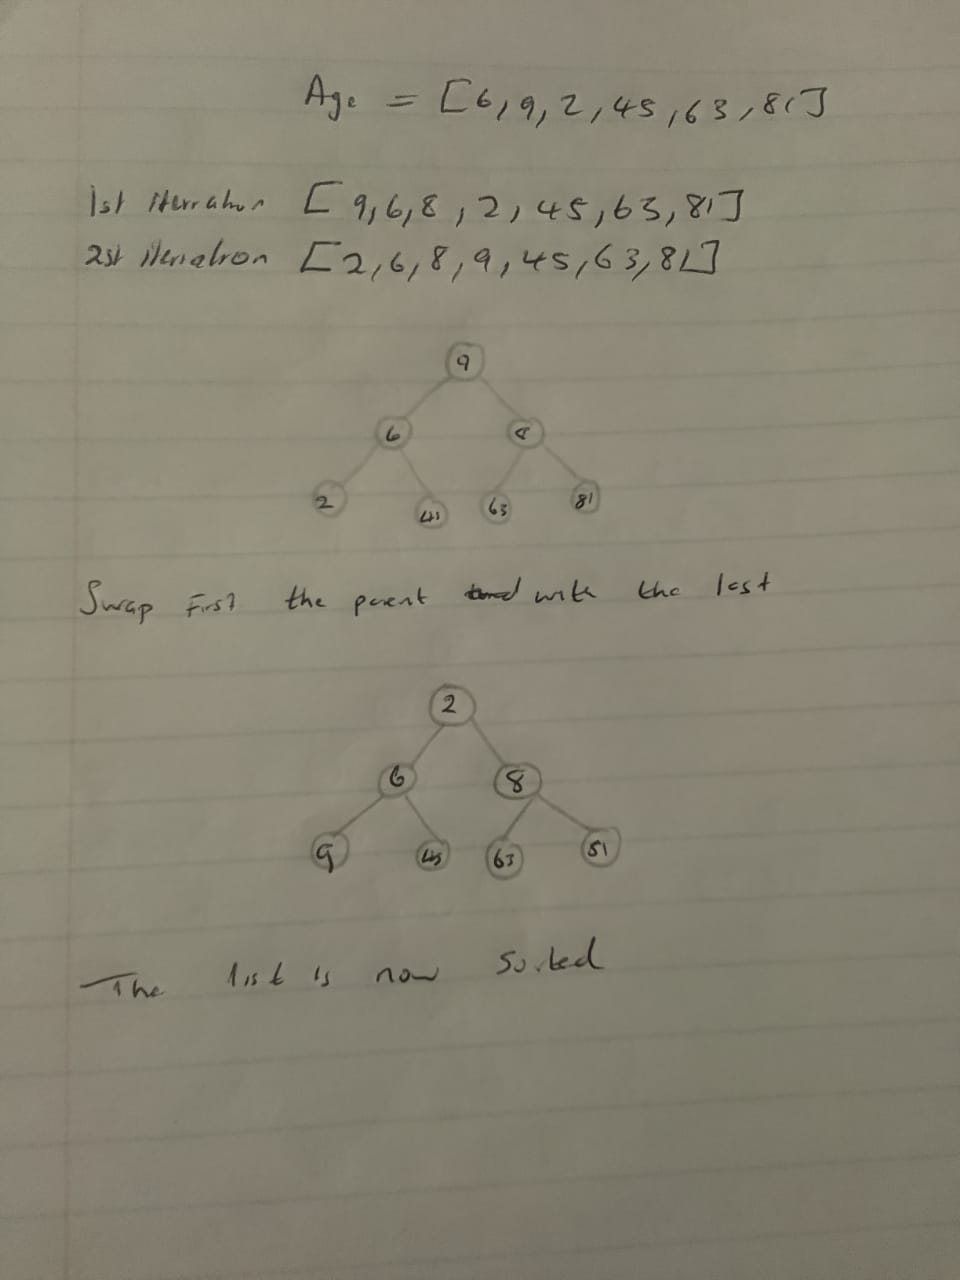 Age = [6,9,2,45,63,81]
1st iterration [9,6,8,2,45,63,81]
2st iteriatron [2,6,8,9,45,63,81]
9
6 8
2 45 63 81
Swap First the parent with the last
2
6 8
9 45 63 81
The list is now Sorted